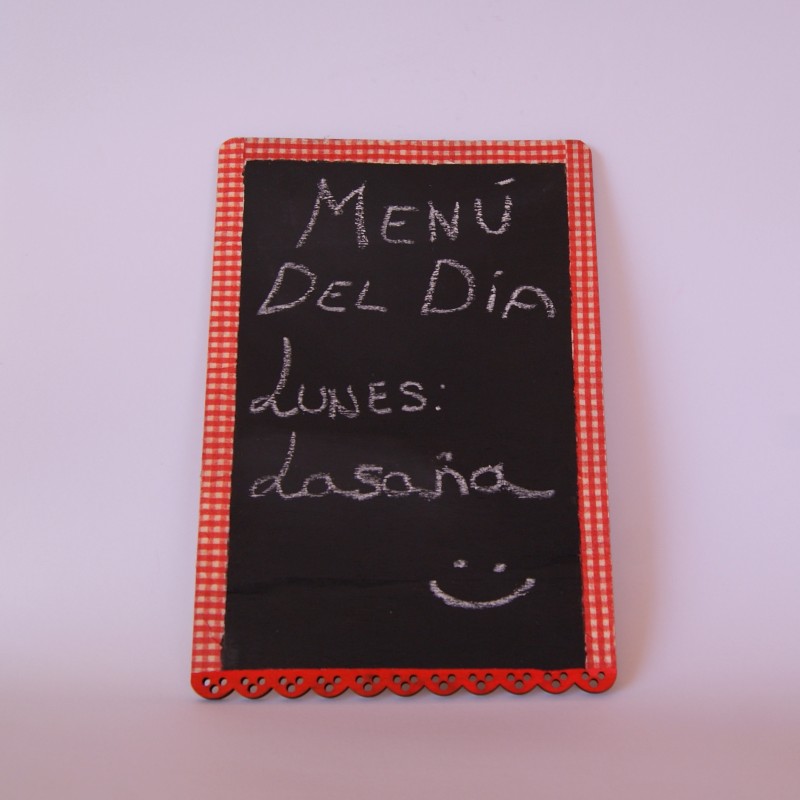 MENÚ
DEL DÍA
LUNES:
Lasaña